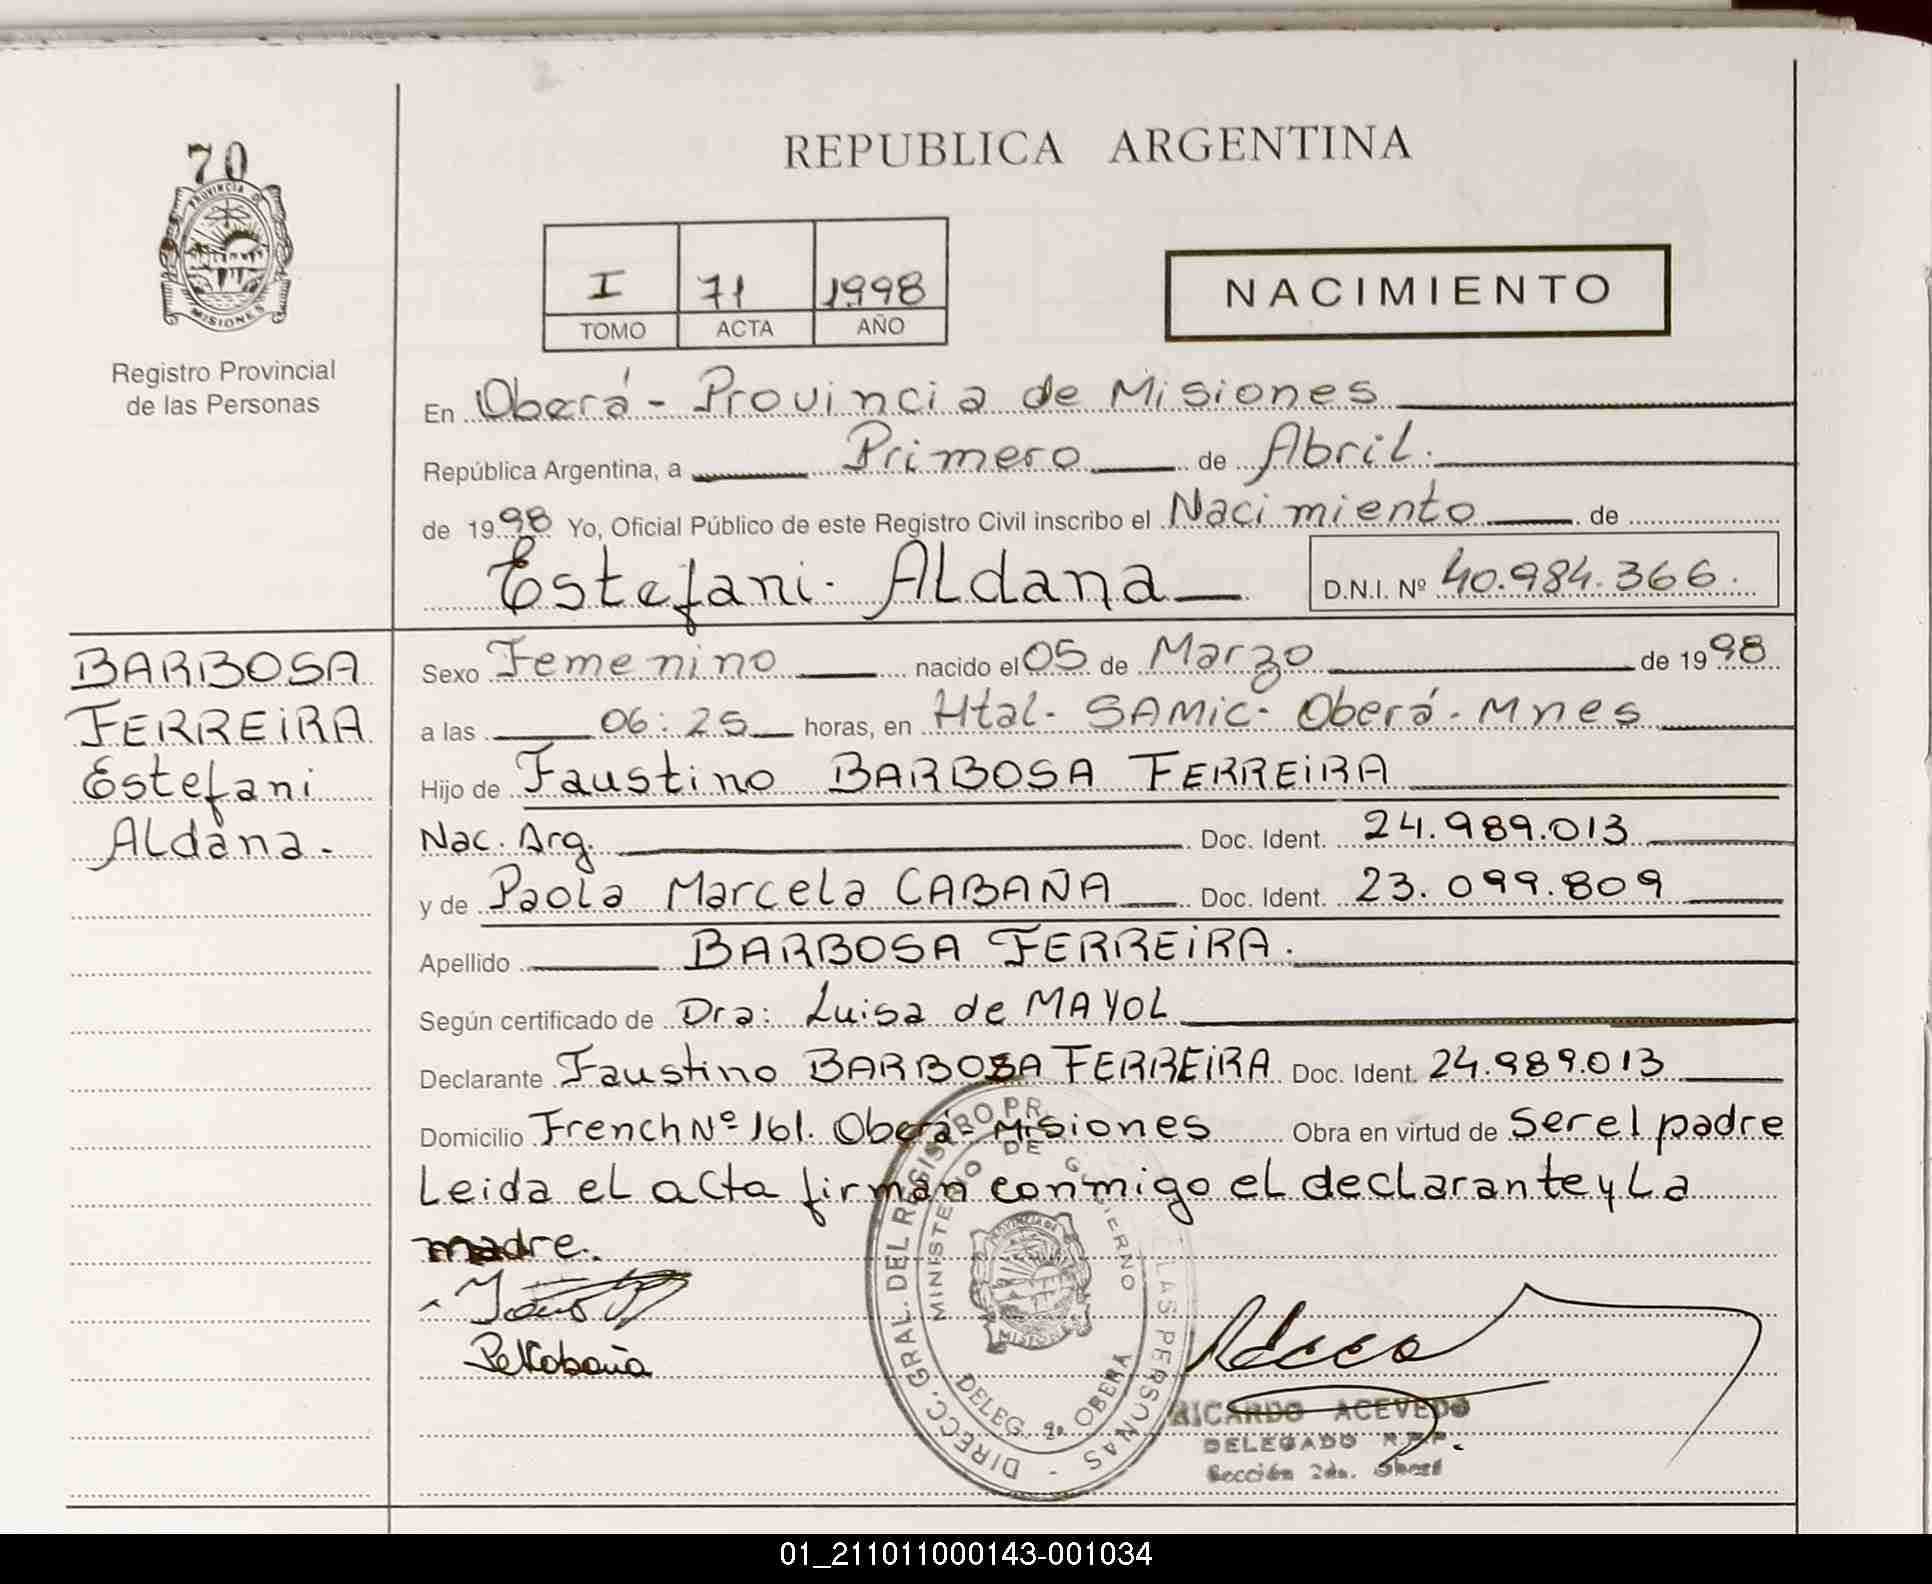 70
PROVINCIA DE
MISIONES
Registro Provincial
de las Personas
REPUBLICA ARGENTINA
I 71 1998
TOMO ACTA AÑO
NACIMIENTO
En Oberá - Provincia de Misiones
República Argentina, a Primero de Abril.
de 1998 Yo, Oficial Público de este Registro Civil inscribo el Nacimiento de
Estefani. Aldana D.N.I. Nº 40.984.366.
BARBOSA
FERREIRA
Estefani
Aldana.
Sexo Femenino nacido el 05 de Marzo de 1998
a las 06:25 horas, en Htal. SAMIC. Oberá. Mnes
Hijo de Faustino BARBOSA FERREIRA
Nac. Arg. Doc. Ident. 24.989.013
y de Paola Marcela CABAÑA Doc. Ident. 23.099.809
Apellido BARBOSA FERREIRA.
Según certificado de Dra: Luisa de MAYOL
Declarante Faustino BARBOSA FERREIRA Doc. Ident. 24.989.013
Domicilio French Nº 161. Oberá - Misiones Obra en virtud de Ser el padre
Leida el acta firman conmigo el declarante y La
madre.
DIRECC. GRAL. DEL REGISTRO PR. DE LAS PERSONAS
MINISTERIO DE GOBIERNO
MISIONES
DELEG. 2a. OBERA
RICARDO ACEVEDO
DELEGADO R.P.P.
Sección 2da. Oberá
01_211011000143-001034